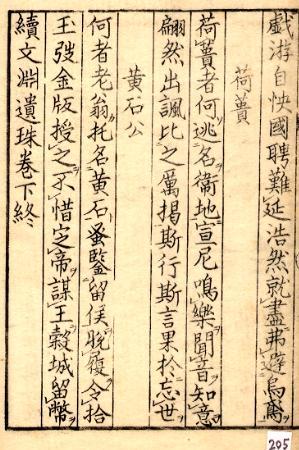 戯游自快國聘難延浩然就盡弗避烏鳶
荷蕢
荷蕢者何逃名衞地宣尼鳴樂聞音知意
翩然出諷比之厲揭斯行斯言果於忘世
黄石公
何者老翁托名黄石蚤鑒留侯脱履令拾
玉弢金版授之不惜定帝謀王穀城留幣
續文淵遺珠卷下終
205